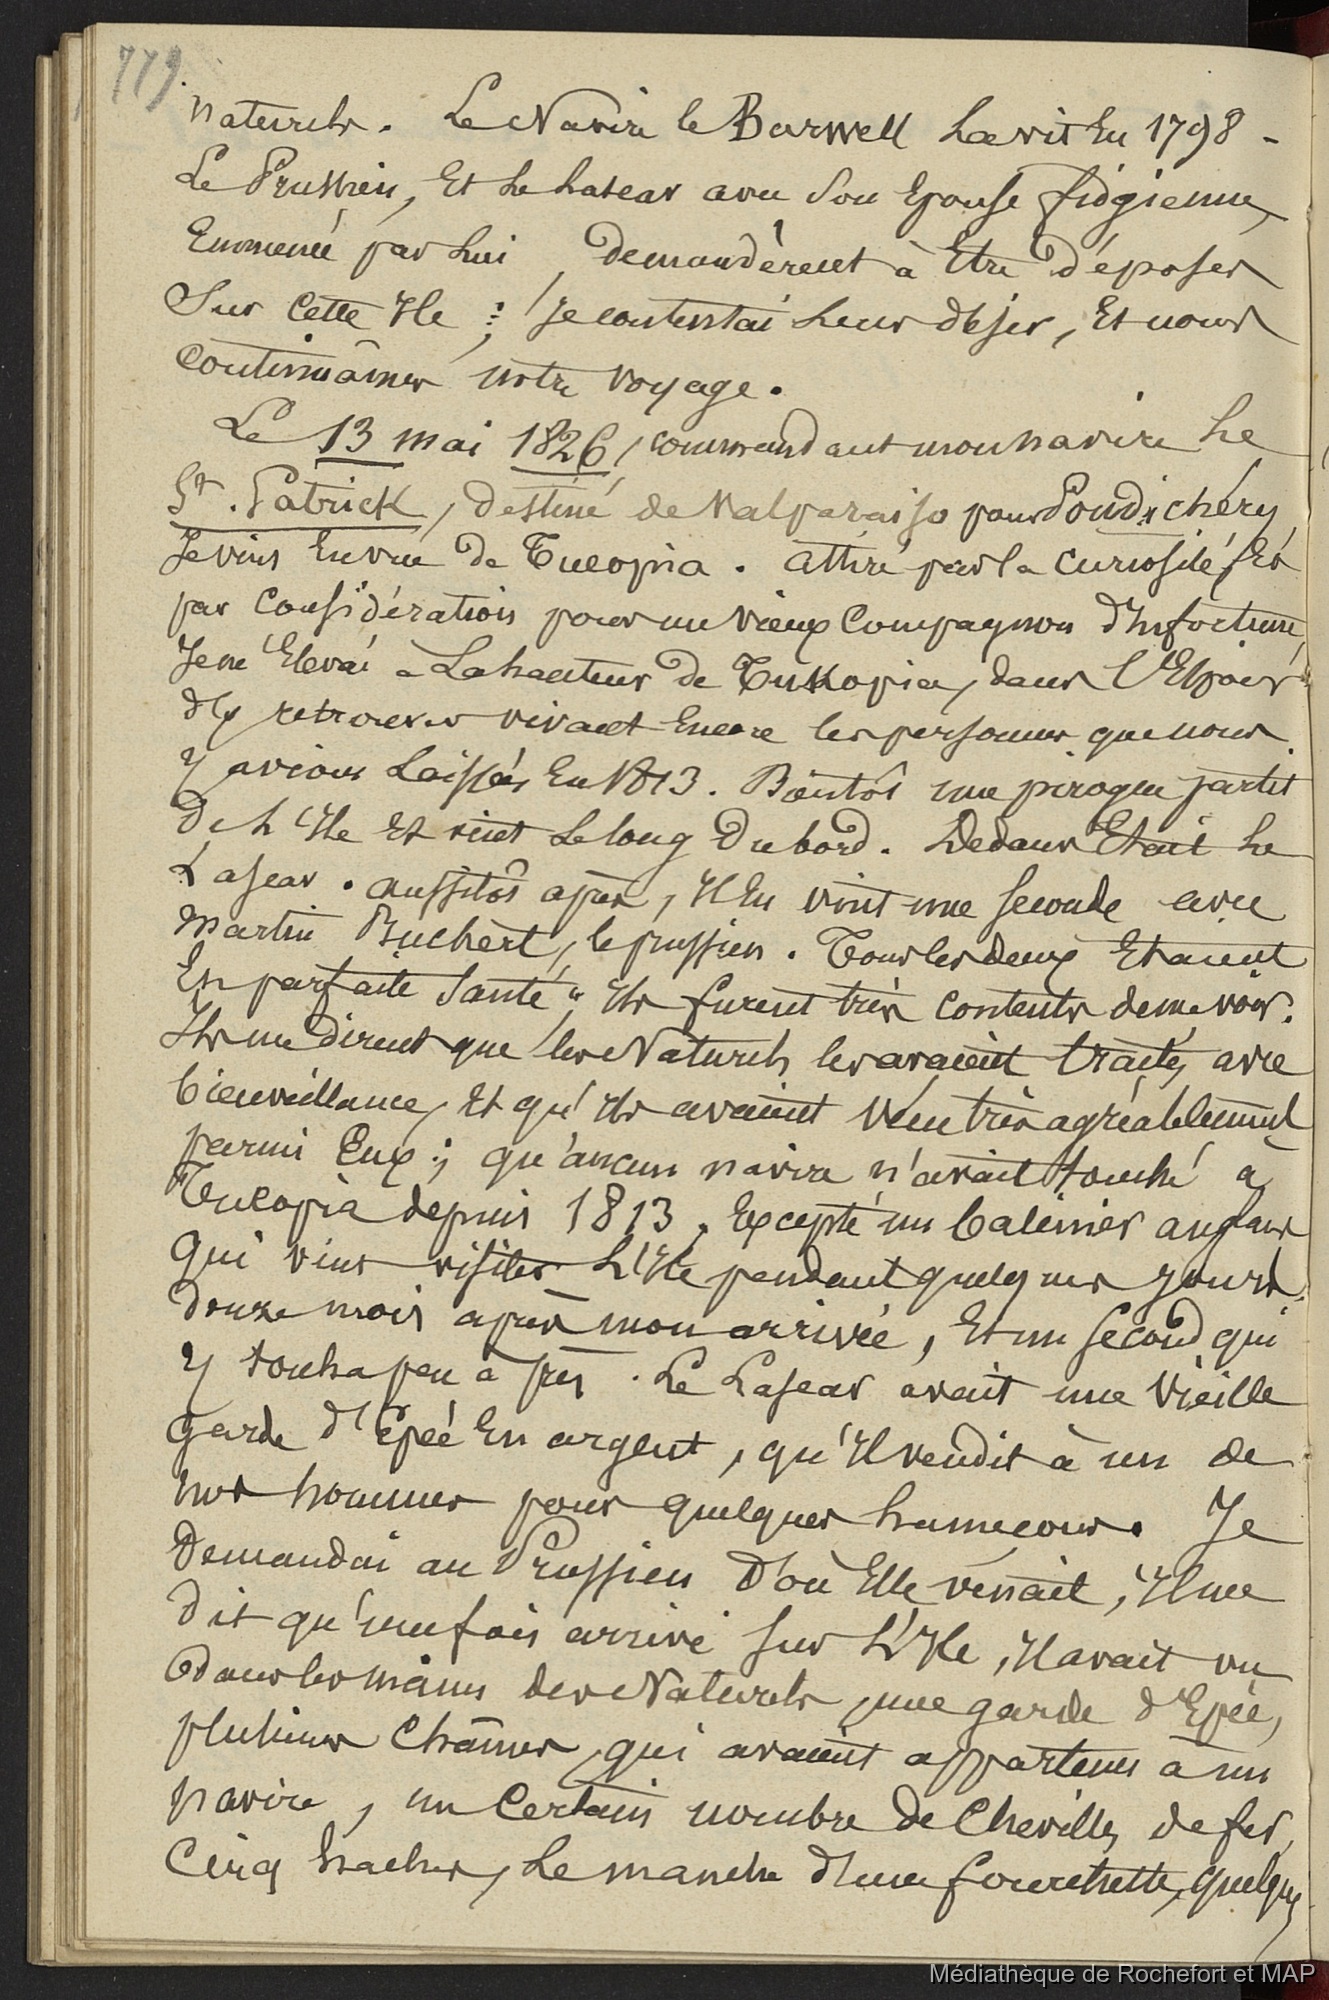 779.
naturels. Le Navire le Barwell La vit En 1798 -
Le Prussien, Et Le Lascar avec Son Epouse fidgienne,
Emmenée par Lui, demandèrent à Etre déposés
Sur Cette Ile ; Je contentai Leur désir, Et nous
Continuâmes notre voyage.
Le 13 mai 1826, commandant mon navire Le
St. Patrick, destiné de Valparaiso pour Pondichéry,
Je vins En vue de Tucopia. attiré par la curiosité, Et
par Considération pour un vieux Compagnon d'Infortune,
Je m'Elevai à La hauteur de Tukopia, dans l'Espoir
d'y retrouver vivant Encore les personnes que nous
y avions Laissées En 1813. Bientôt une pirogue partit
de L'Ile Et vint Le long du bord. Dedans Etait Le
Lascar. aussitôt après, Il En vint une seconde avec
Martin Buchert, le prussien. Tous les deux Etaient
En parfaite Santé, Ils furent très contents de me voir.
Ils me dirent que les Naturels les avaient traités avec
bienveillance, Et qu'Ils avaient vécu très agréablement
parmi Eux ; qu'aucun navire n'avait touché à
Tucopia depuis 1813, Excepté un baleinier anglais
qui vint visiter L'Ile pendant quelques jours,
douze mois après mon arrivée, Et un second qui
y toucha peu après. Le Lascar avait une vieille
garde d'Epée En argent, qu'Il vendit à un de
nos hommes pour quelques hameçons. Je
demandai au Prussien d'où Elle venait, Il me
dit qu'une fois arrivé sur L'Ile, Il avait vu
dans les mains des Naturels, une garde d'Epée,
plusieurs Chaînes, qui avaient appartenu à un
navire, un Certain nombre de Chevilles de fer,
Cinq haches, Le manche d'une fourchette, quelques
Médiathèque de Rochefort et MAP